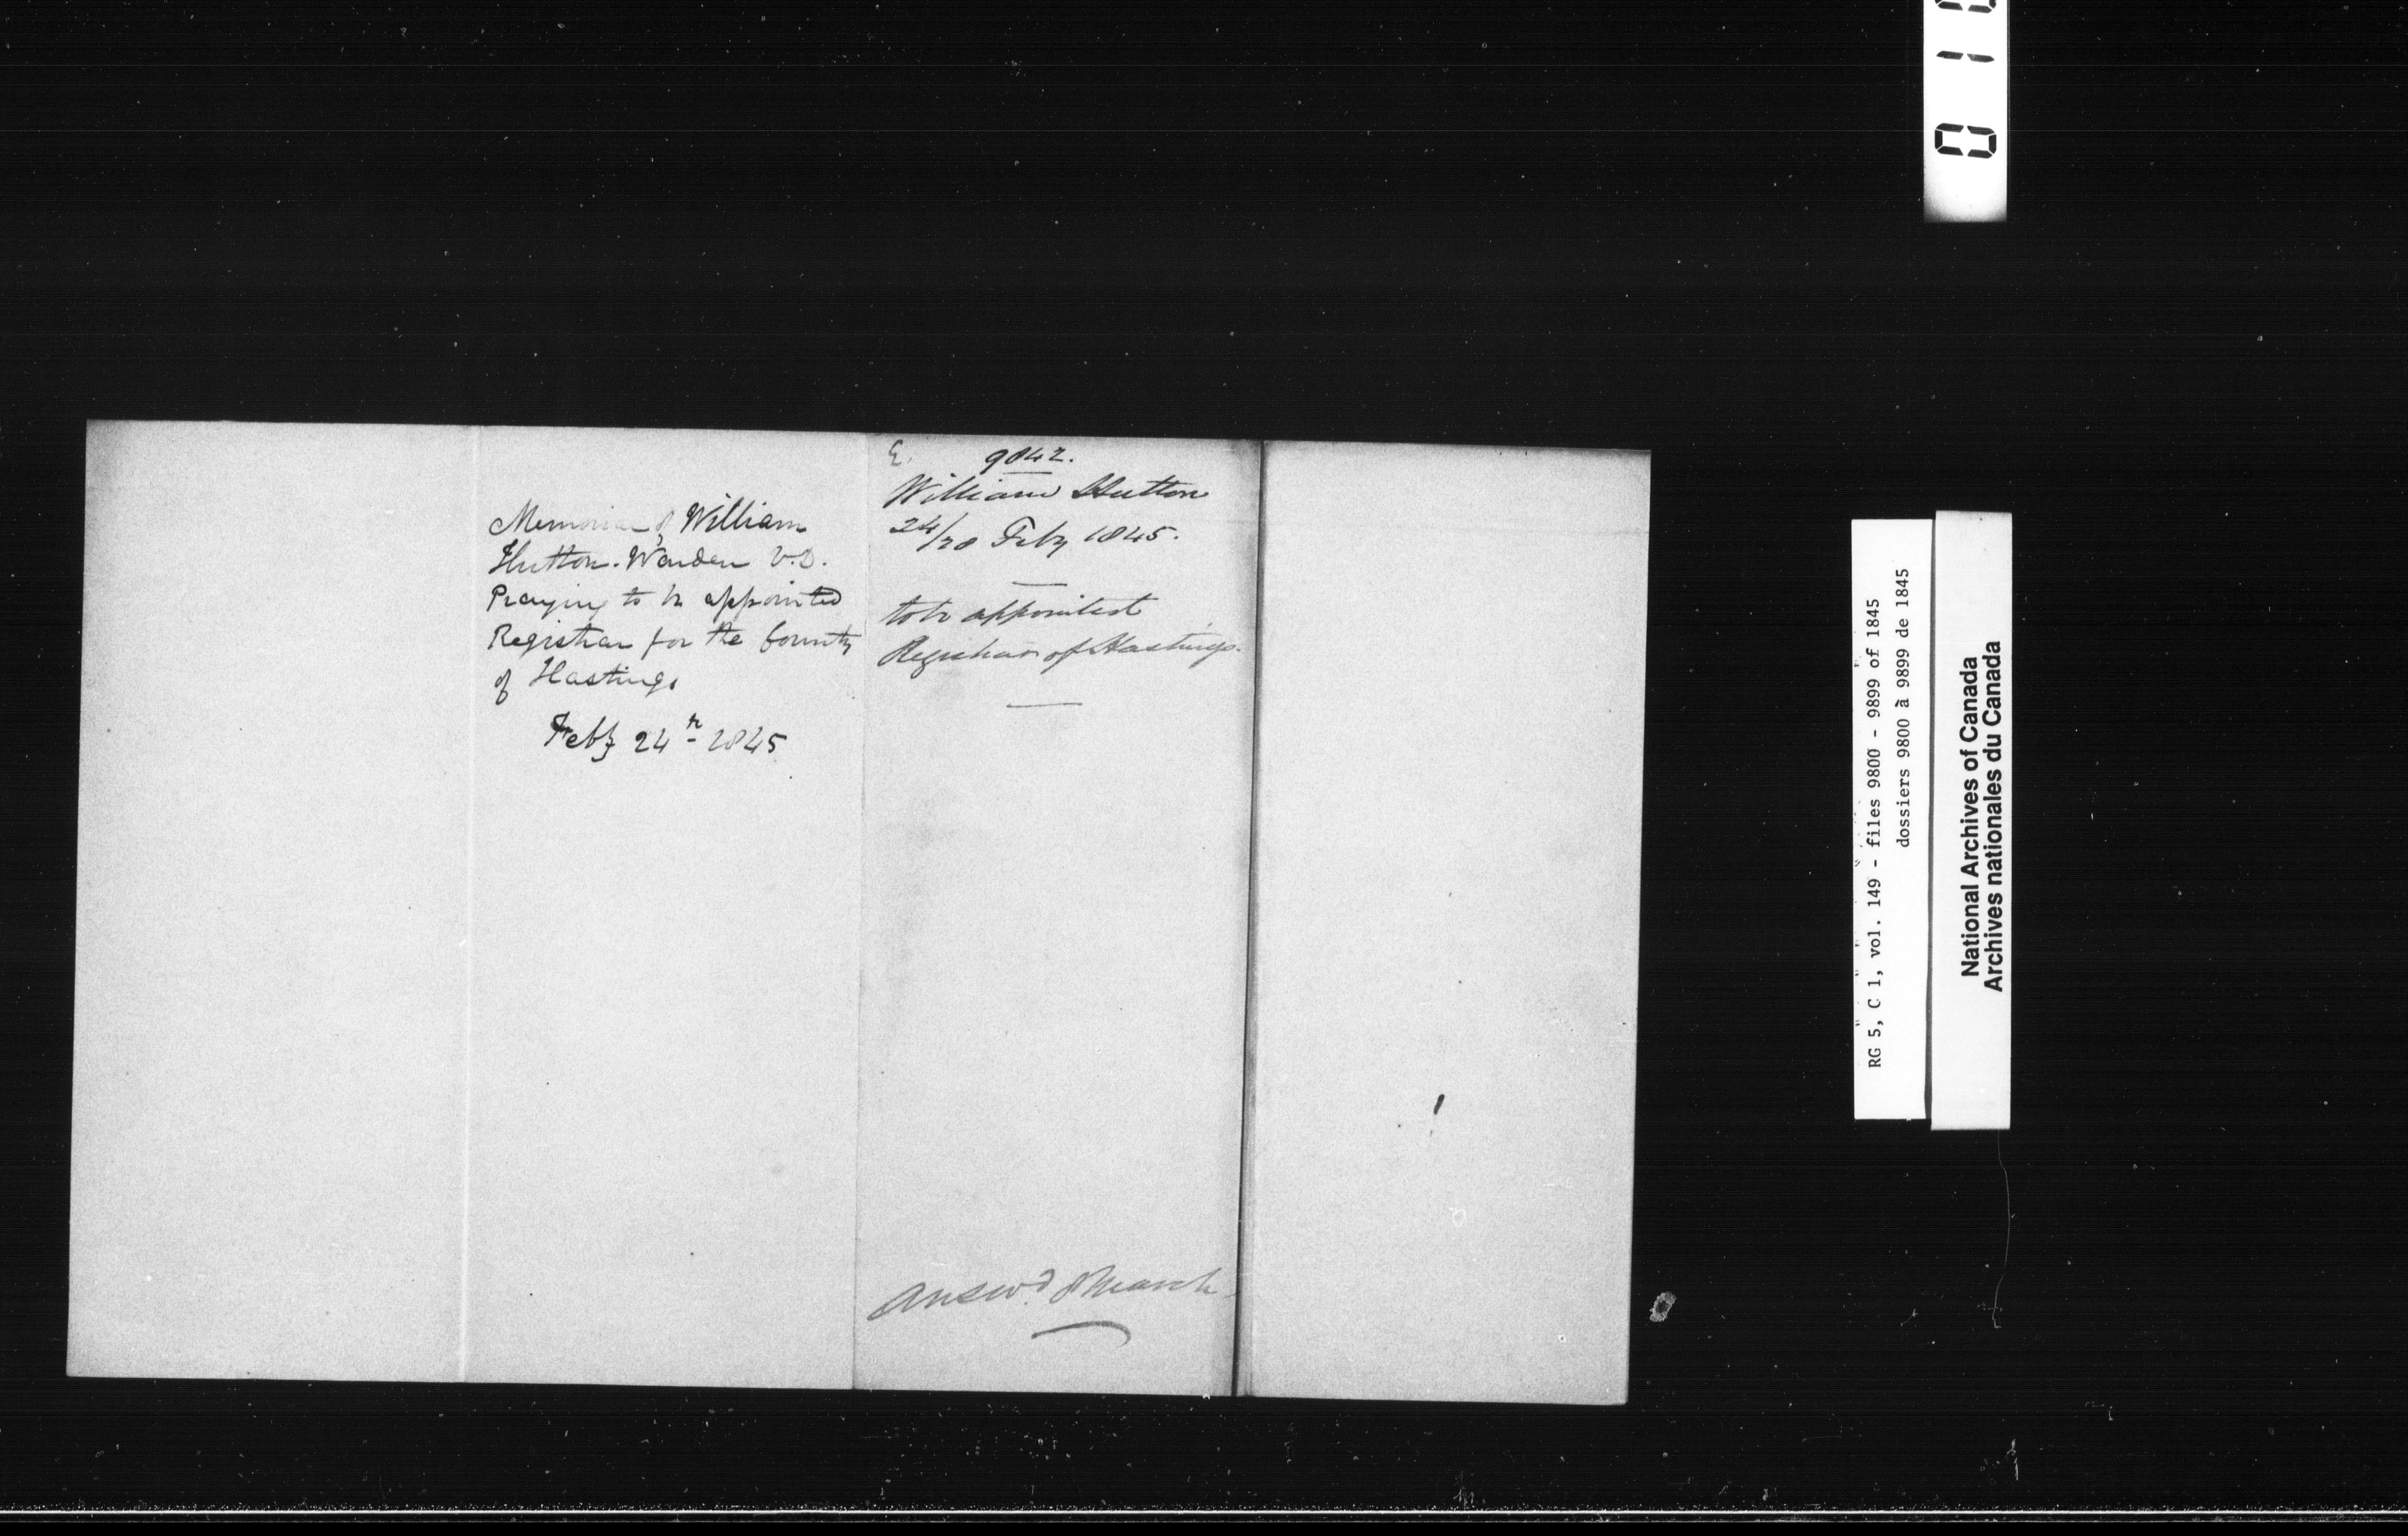 Memorial of William
Hutton. Warden V.D.
Praying to be appointed
Registrar for the County
of Hastings
Feby 24th 1845
E. 9842.
William Hutton
24/28 Feby 1845.
to be appointed
Registrar of Hastings.
Answd. 8 March
RG 5, C 1, vol. 149 - files 9800 - 9899 of 1845
dossiers 9800 à 9899 de 1845
National Archives of Canada
Archives nationales du Canada